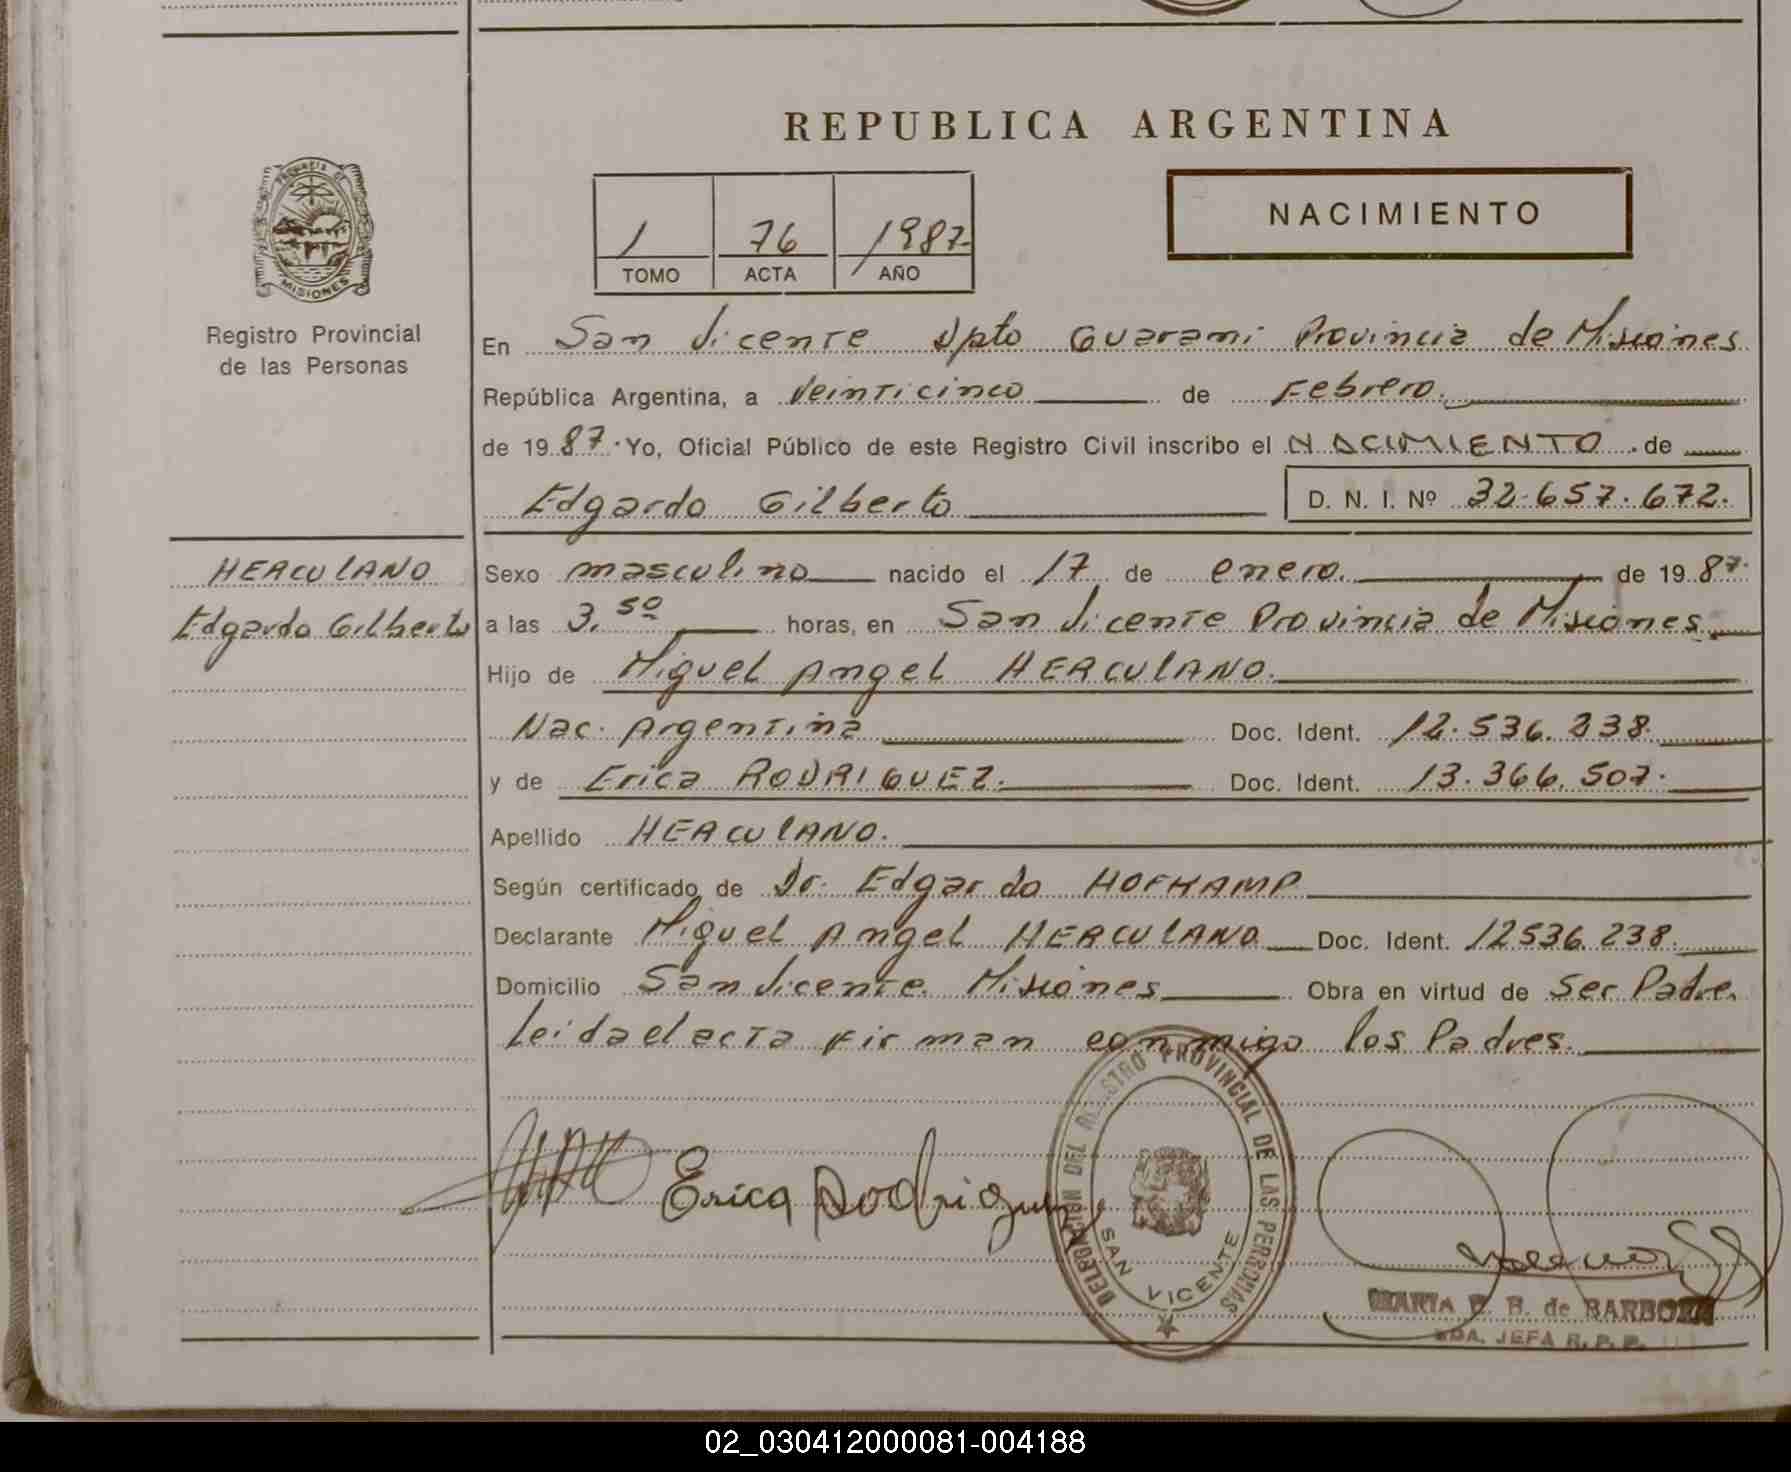 REPUBLICA ARGENTINA
PROVINCIA DE
MISIONES
Registro Provincial
de las Personas
1 76 1987-
TOMO ACTA AÑO
NACIMIENTO
En San Vicente Dpto Guarani Provincia de Misiones
República Argentina, a Veinticinco de Febrero.
de 1987. Yo, Oficial Público de este Registro Civil inscribo el NACIMIENTO de
Edgardo Gilberto D. N. I. Nº 32.657.672.
HERCULANO
Edgardo Gilberto
Sexo masculino nacido el 17 de enero. de 1987.
a las 3.50 horas, en San Vicente Provincia de Misiones.
Hijo de Miguel Angel HERCULANO.
Nac. Argentina Doc. Ident. 12.536.238.
y de Erica RODRIGUEZ. Doc. Ident. 13.366.507.
Apellido HERCULANO.
Según certificado de Dr. Edgardo HOFKAMP
Declarante Miguel Angel HERCULANO Doc. Ident. 12536.238.
Domicilio San Vicente. Misiones Obra en virtud de Ser Padre.
leida el acta firman conmigo los Padres.
Erica Rodriguez
DELEGACION DEL REGISTRO PROVINCIAL DE LAS PERSONAS
SAN VICENTE
MARIA B. de BARBOZA
JEFA R. P. P.
02_030412000081-004188